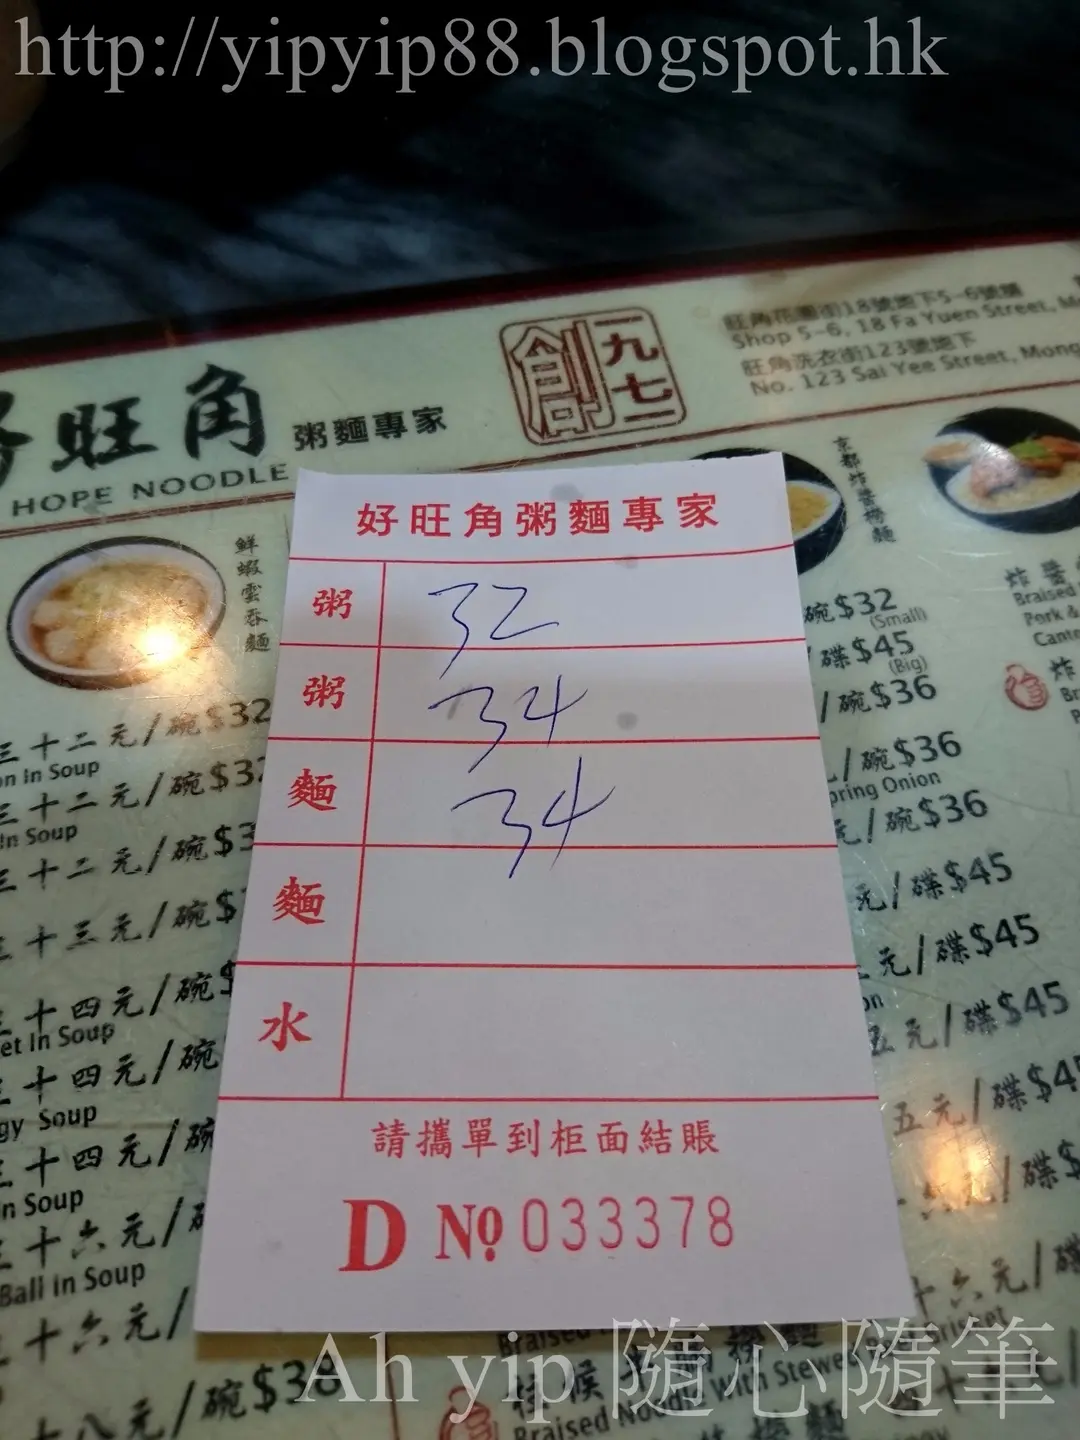 http://yipyip88.blogspot.hk
旺角花園街18號地下5-6號舖
Shop 5-6, 18 Fa Yuen Street,
旺角洗衣街123號地下
No. 123 Sai Yee Street, Mong
創
一九七一
旺角 粥麵專家
HOPE NOODLE
好旺角粥麵專家
粥 32
粥 34
麵 34
麵
水
請攜單到柜面結賬
D No 033378
鮮蝦雲吞麵
京都炸醬撈麵
三十二元/碗$32
In Soup
三十二元/碗
In Soup
三十二元/碗
三十三元/碗
三十四元/碗
In Soup
三十四元/碗
Soup
三十四元/碗
In Soup
三十六元/
Ball In Soup
十六元/
十八元/碗$38
碗$32
(Small)
碟$45
(Big)
/碗$36
/碗$36
Spring Onion
元/碗$36
元/碟$45
元/碟$45
五元/碟$45
五元/碟
十六元/碟
炸醬
Braised
Pork &
炸
Braised
Braised Noodle With Stewed
Ah yip 隨心隨筆